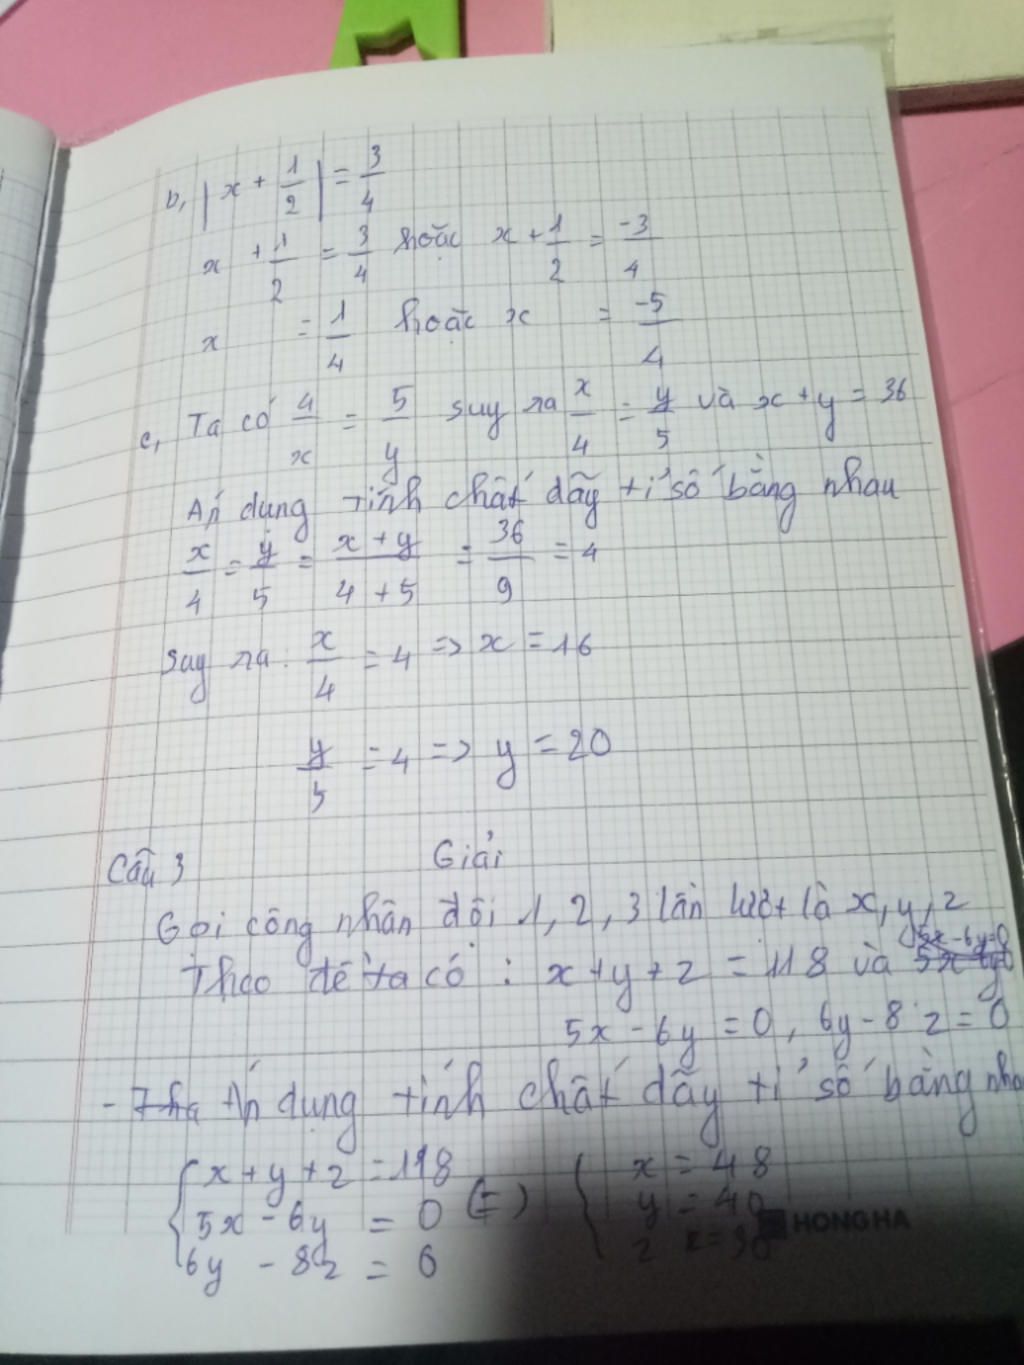 b, |x + 1/2| = 3/4
x + 1/2 = 3/4 hoặc x + 1/2 = -3/4
x = 1/4 hoặc x = -5/4
c, Ta có 4/x = 5/y suy ra x/4 = y/5 và x + y = 36
Áp dụng tính chất dãy tỉ số bằng nhau
x/4 = y/5 = x + y/4 + 5 = 36/9 = 4
Suy ra : x/4 = 4 => x = 16
y/5 = 4 => y = 20
Câu 3 Giải
Gọi công nhân đội 1, 2, 3 lần lượt là x, y, z
Theo đề ta có : x + y + z = 118 và
5x - 6y = 0, 6y - 8z = 0
- Áp dụng tính chất dãy tỉ số bằng nha
x + y + z = 118 (=) x = 48
5x - 6y = 0 y = 40
6y - 8z = 0 z
HONG HA